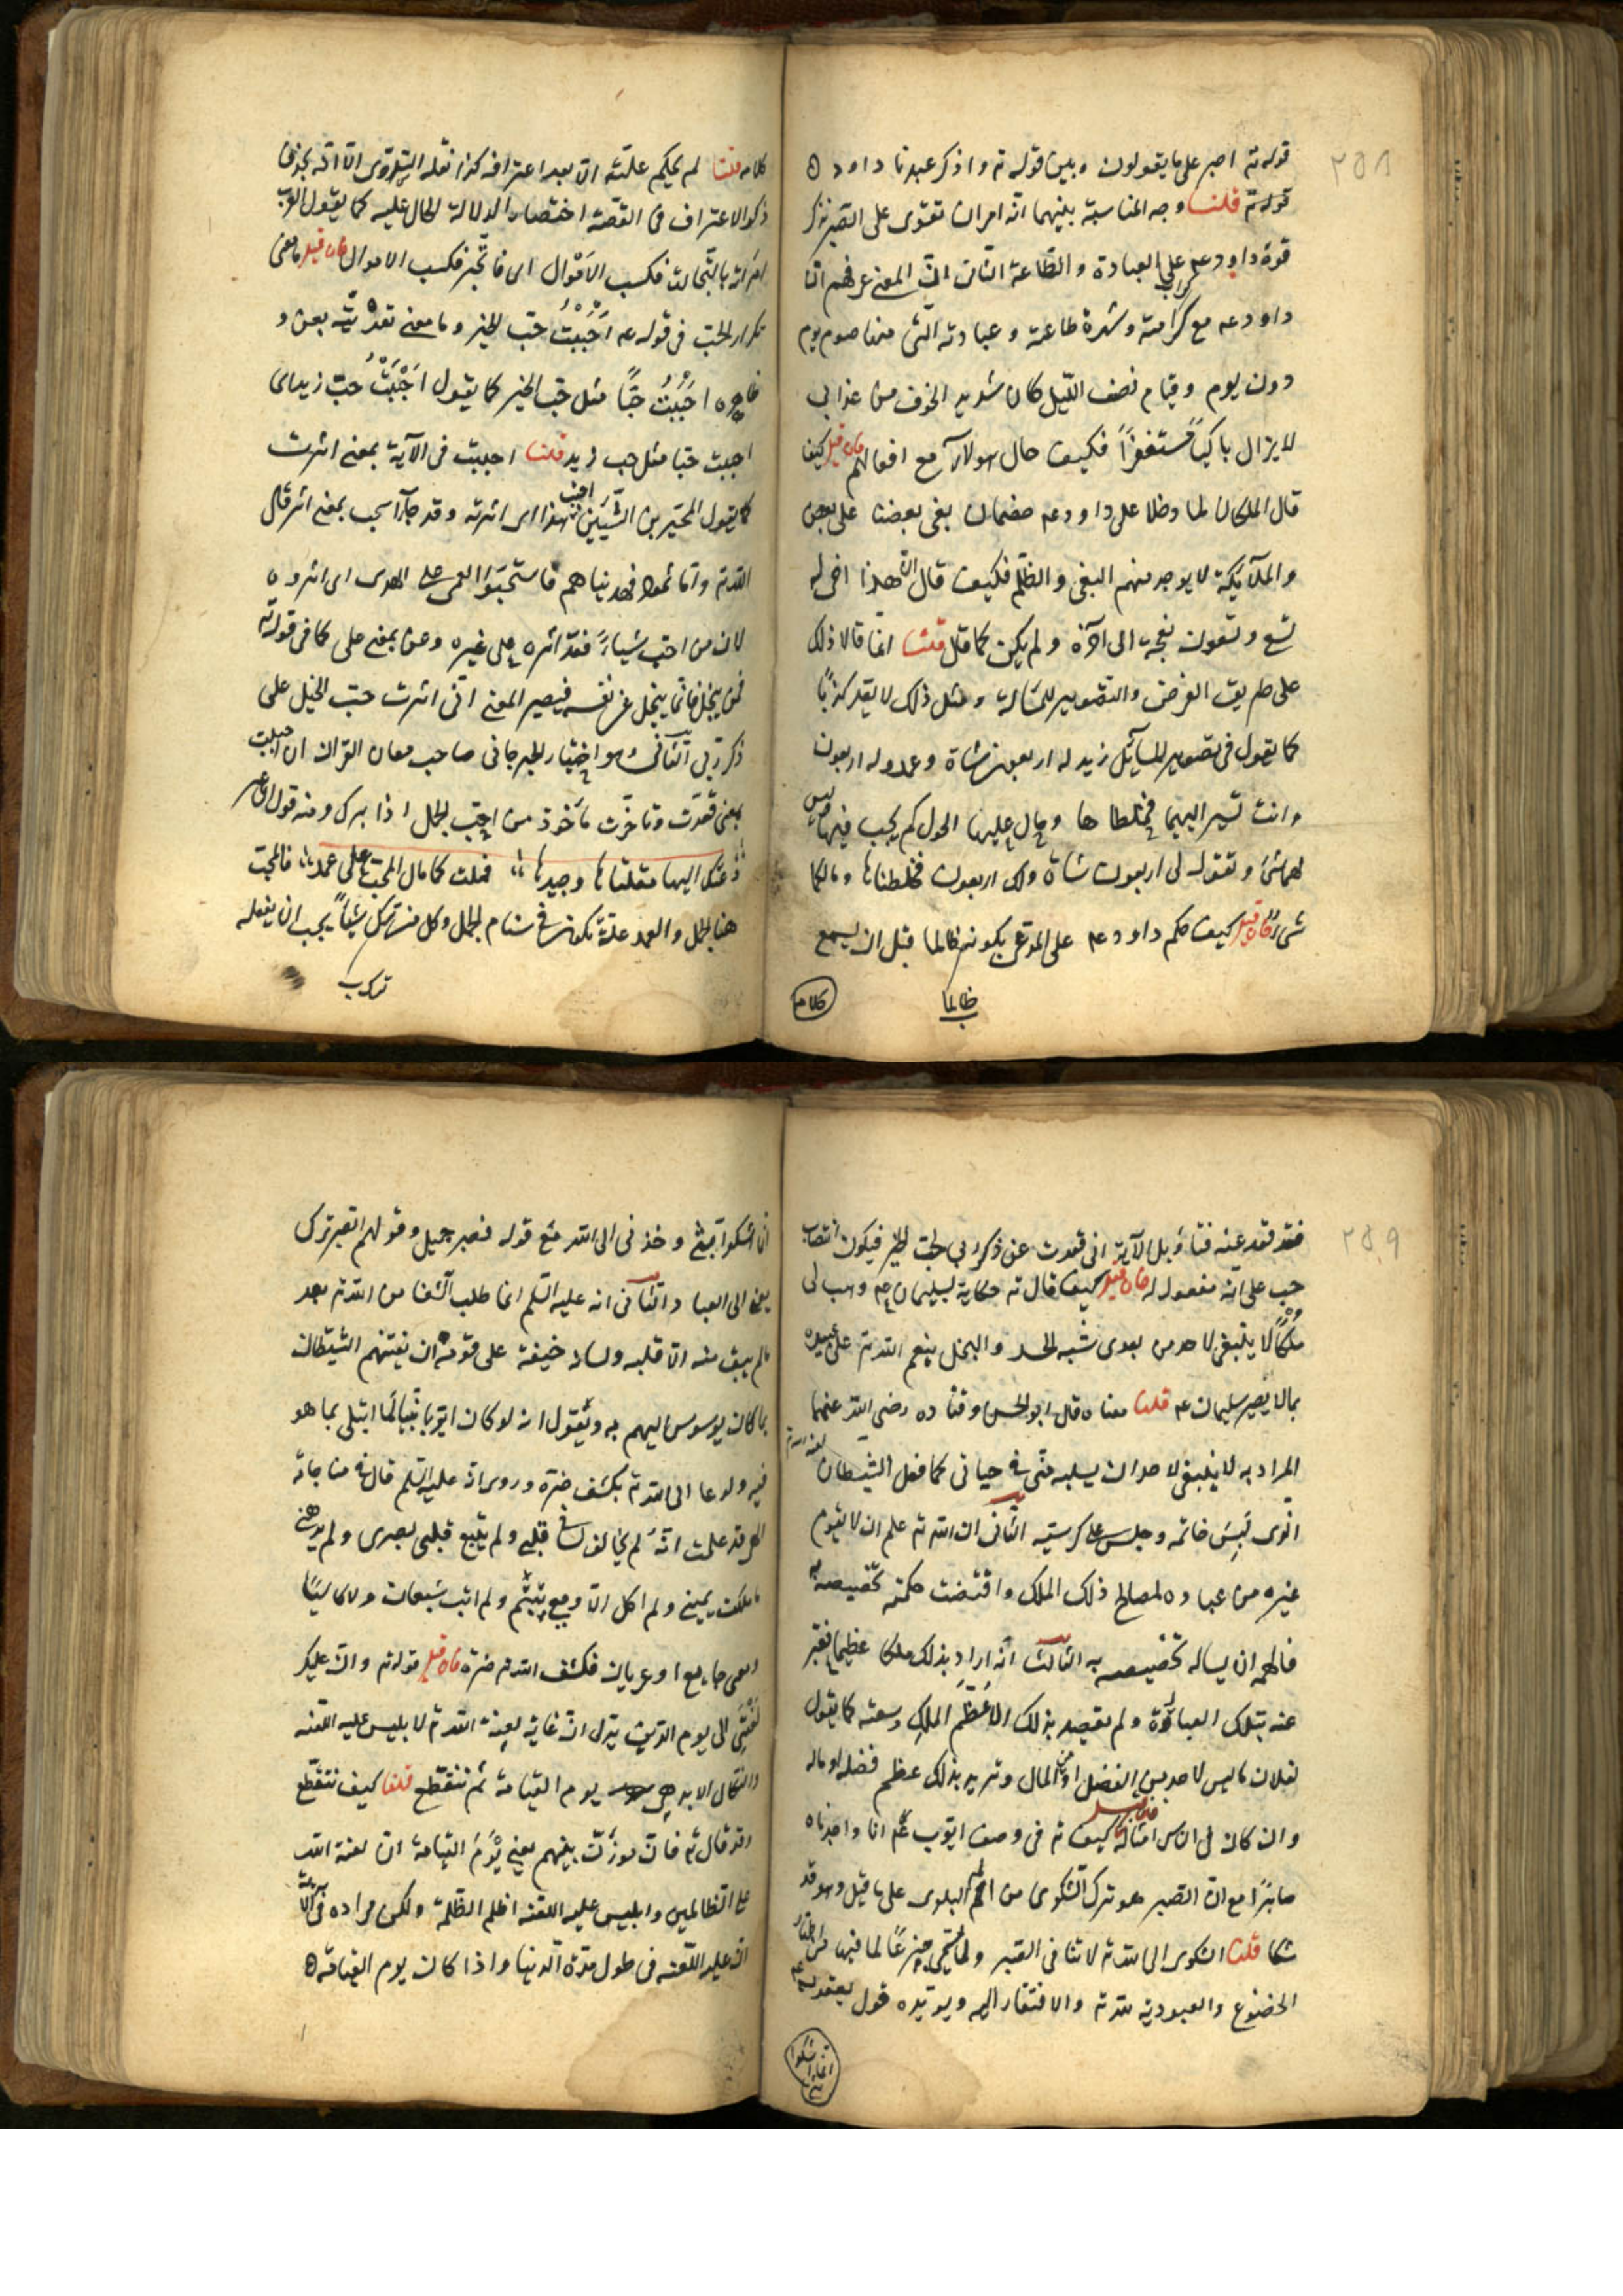 ٢٥٨
قوله تم اصبر على ما يقولون وبين قوله تم واذكر عبدنا داود ه
قوله تم قلنا وجه المناسبة بينهما انه امران تقوى على الصبر بذكر
قوة داود عم على العبادة والطاعة الثانى ان المعنى عرفهم ان
داود عم مع كرامته وشهرة طاعته وعبادته التى منها صوم يوم
دون يوم وقيام نصف الليل كان شديد الخوف من عذابى
لا يزال باكيا مستغفرا فكيف حال هولآء مع افعالهم فان قيل كيف
قال الملكان لما دخلا على داود عم خصمان بغى بعضنا على بعض
والملآئكة لا يوجد منهم البغى والظلم فكيف قال ان هذا اخى له
تسع وتسعون نعجة الى آخره ولم يكن كما قال قلنا انما قالا ذلك
على طريق الفرض والتصوير للمسالة ومثل ذلك لا يعد كذبا
كما يقول فى تصوير المسآئل زيد له اربعون شاة وعمرو له اربعون
وانت تشير اليهما فخلطاها وحال عليها الحول كم يجب فيها وليس
لهما شئ وتقول لى اربعون شاة ولك اربعون فخلطناها وما لكما
شئ فان قيل كيف حكم داود عم على المدعى بكونه ظالما قبل ان يسمع
ظالما
كلام
كلامه قلنا لم يحكم عليه الا بعد اعترافه كذا نقله السدى الا انه حذف
ذكر الاعتراف فى القصة اختصارا لدلالة الحال عليه كما يقول العرب
امرته بالتجارة فكسب الاموال اى فاتجر فكسب الاموال فان قيل ما معنى
تكرار الحب فى قوله عم احببت حب الخير وما معنى تعديته بعن و
ظاهره احببت حبا مثل حب الخير كما يقول احببت حب زيد اى
احببت حبا مثل حب زيد قلنا احببت فى الآية بمعنى اثرت
كما يقول المخير بين الشيئين احببت هذا اى اثرته وقد جآء استحب بمعنى اثر قال
الله تم واما ثمود فهديناهم فاستحبوا العمى على الهدى اى اثروه
لان من احب شيئا فقد اثره على غيره وعن بمعنى على كما فى قوله تم
فمن يبخل فانما يبخل عن نفسه فيصير المعنى انى اثرت حب الخيل على
ذكر ربى الثانى وهو اختيار الجرجانى صاحب معان القران ان احببت
بمعنى قعدت وتاخرت مأخوذ من احب الجمل اذا برك ومنه قول الشاعر
دعتك اليها مقلتاها وجيدها فملت كما مال المحب على عمد فالمحب
هنا الجمل والعمد علة تكون فى سنام الجمل وكل من ترك شيئا يجب ان يفعله
تركب
٢٥٩
فقد قعد عنه فتاويل الآية انى قعدت عن ذكر ربى لحب الخير فيكون انتصاب
حب على انه مفعول له فان قيل كيف قال تم حكاية لسليمان عم وهب لى
ملكا لا ينبغى لاحد من بعدى شبه الحسد والبخل بنعم الله تم على عبيده
بما لا يضير سليمان عم قلنا معناه قال ابو الحسن وقتاده رضى الله عنهما
المراد به لا ينبغى لاحد ان يسلبه منى فى حياتى كما فعل الشيطان
الذى لبس خاتمه وجلس على كرسيه الثانى ان الله تم علم ان لا يقوم
غيره من عباده لمصالح ذلك الملك واقتضت حكمته تخصيصه به
فالهمه ان يساله تخصيصه به الثالث انه اراد بذلك ملكا عظيما فعبر
عنه بتلك العبارة ولم يقصد بذلك الا عظم الملك وسعته كما يقول
لفلان ما ليس لاحد من الفضل او من المال وتريد بذلك عظم فضله او ماله
وان كان فى الناس امثاله فان قيل كيف تم فى وصف ايوب عم انا وجدناه
صابرا مع ان الصبر هو ترك الشكوى من الم البلوى على ما قيل وهو قد
شكا قلنا الشكوى الى الله تم لا تنافى الصبر ولا تسمى جزعا لما فيها من اظهار
الخضوع والعبودية لله تم والافتقار اليه ويؤيده قول يعقوب عم
انما اشكوا
انما اشكوا بثى وحزنى الى الله مع قوله فصبر جميل وقولهم الصبر ترك
يعنى الى العباد الثانى انه عليه السلم انما طلب الشفا من الله تم بعد
ما لم يبق منه الا قلبه ولسانه خيفة على قومه ان يفتنهم الشيطان
بما كان يوسوس اليهم به ويقول انه لو كان ايوب نبيا لما ابتلى بما هو
فيه ولدعا الى الله تم بكشف ضره وروى انه عليه السلم قال فى مناجاته
الهى قد علمت انه لم يخالف لسانى قلبى ولم يتبع قلبى بصرى ولم يلهنى
ما ملكت يمينى ولم اكل الا ومعى يتيم ولم ابت شبعان ولا كاسيا
ومعى جايع او عريان فكشف الله تم ضره فان قيل قوله تم وان عليك
لعنتى الى يوم الدين يدل ان غاية لعنة الله تم لابليس عليه اللعنه
يوم القيامة ثم تنقطع قلنا كيف تنقطع
وقد قال تم فاذن موذن بينهم يعنى يوم القيامة ان لعنة الله
على الظالمين وابليس عليه اللعنه اظلم الظلمة ولكن مراده فى الآية
ان عليه اللعنه فى طول مدة الدنيا واذا كان يوم القيامة ه